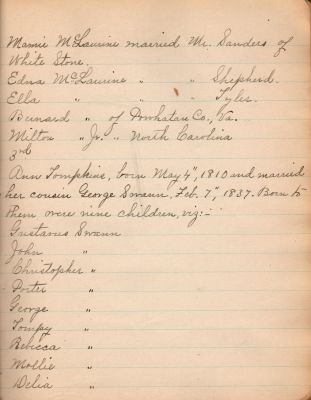 Mamie McLaurine married Mr. Sanders of
White Stone.
Edna McLaurine " " Shepherd.
Ella " " " Tyler.
Bernard " of Powhatan Co., Va.
Milton " Jr. " North Carolina
3rd
Ann Tompkins, born May 4", 1810 and married
her cousin George Swann, Feb. 7", 1837. Born to
them were nine children, viz:-
Gustavus Swann
John "
Christopher "
Porter "
George "
Tompy "
Rebecca "
Mollie "
Delia "